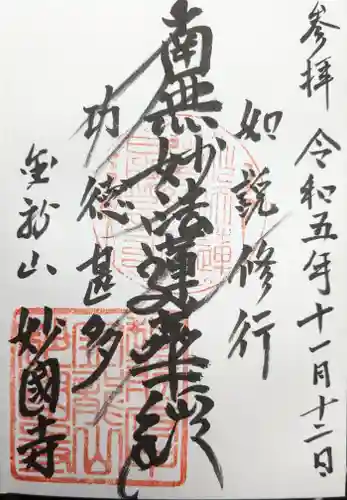 参拝 令和五年十一月十二日
如説修行
南無妙法蓮華経
功徳甚多
金龍山
妙國寺